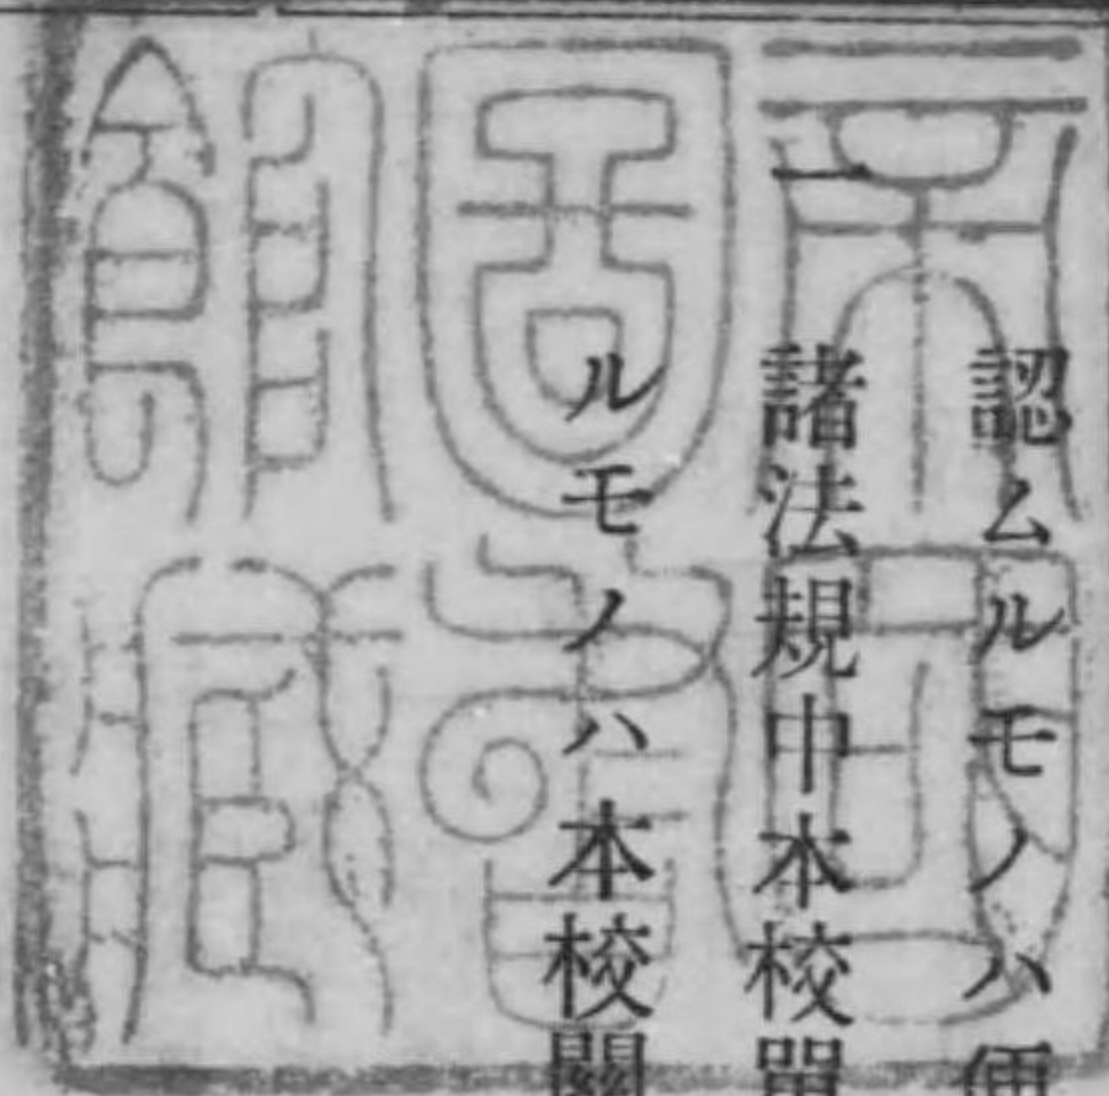 認ムルモノハ便
諸法規中本校單
ルモノハ本校關
帝國
圖書
館藏